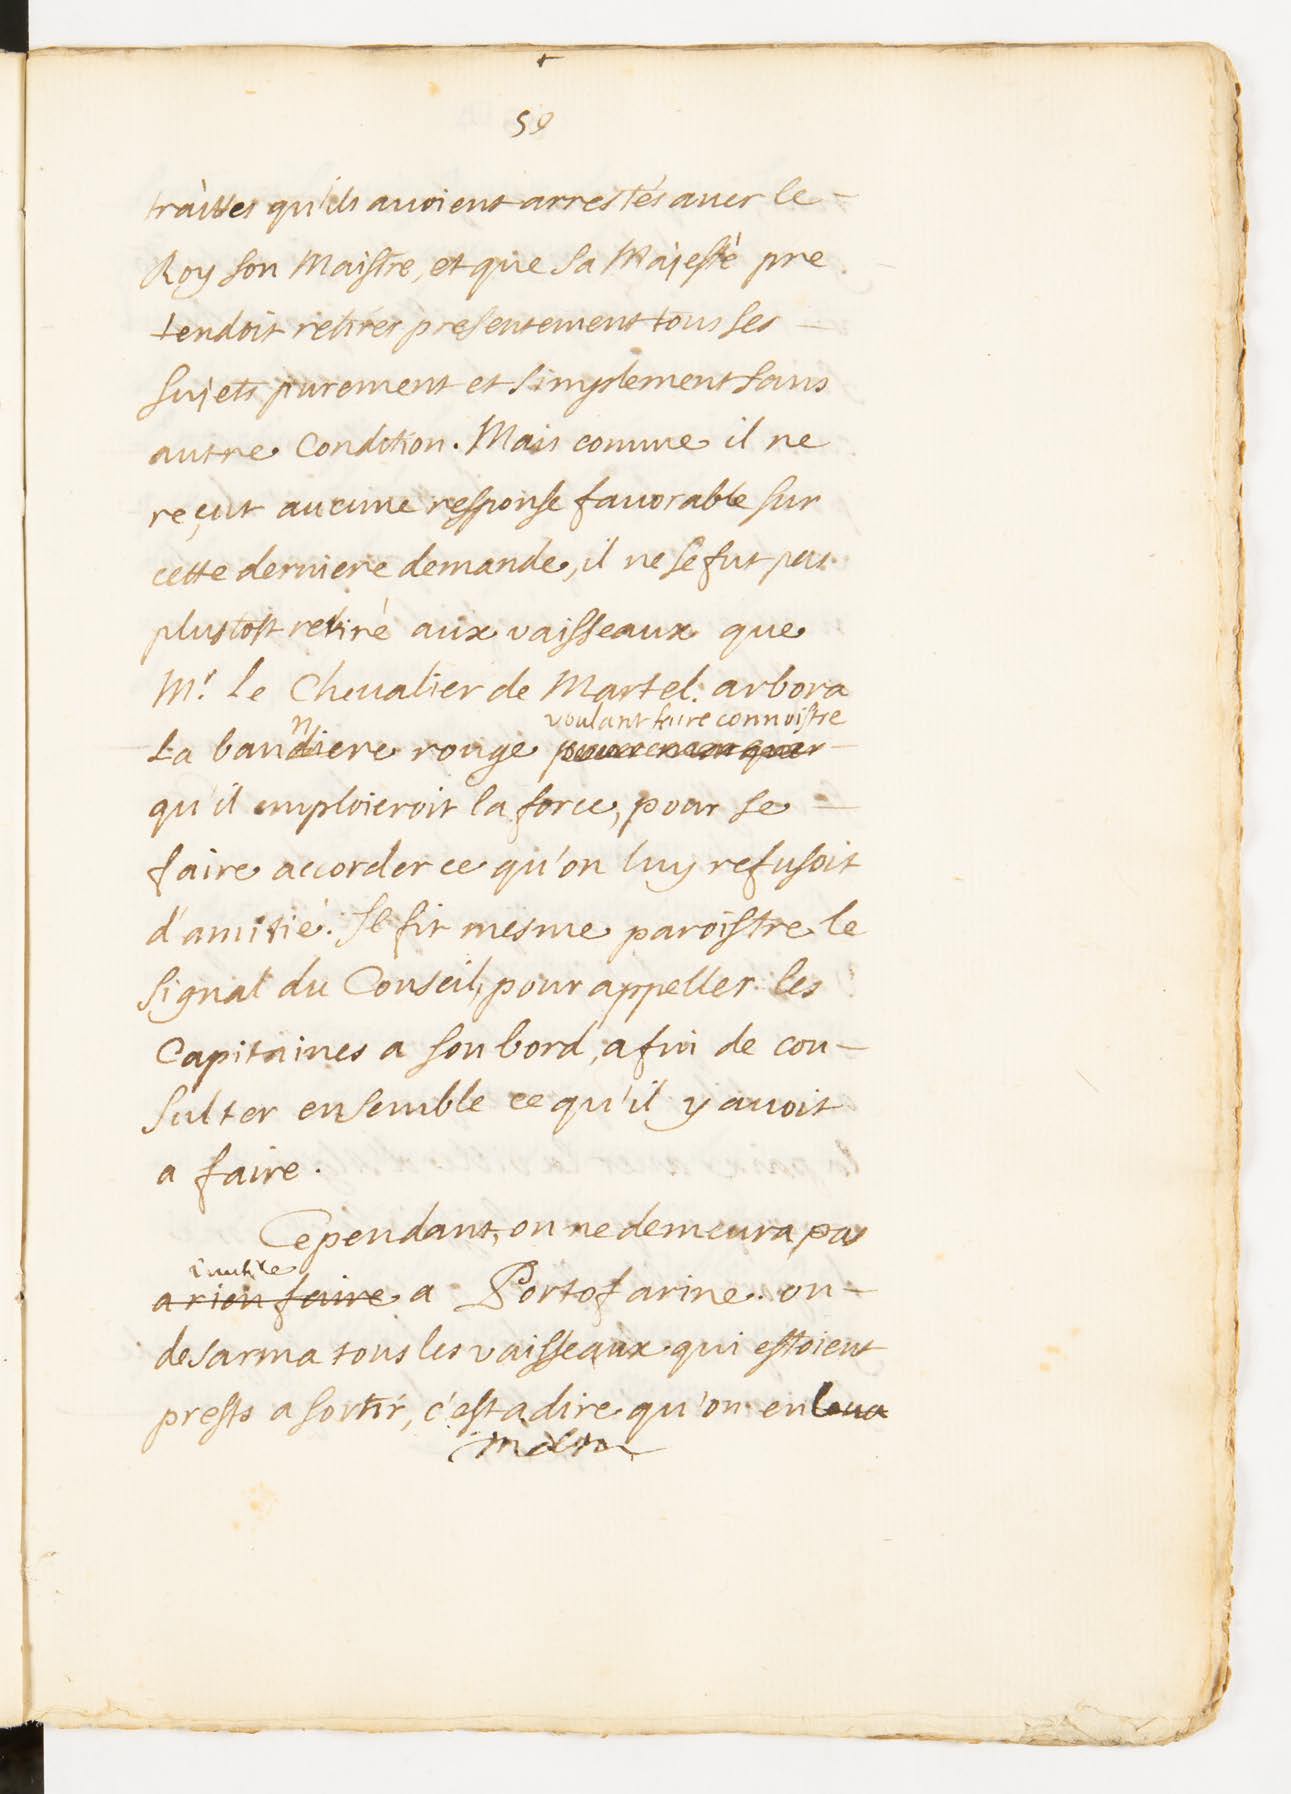 59
traittes qu'ils auoient arrestés auec le
Roy son Maistre, et que sa Majesté pre
tendoit retirer presentement tous ses
sujets purement et simplement sans
autre Condition. Mais comme il ne
reçut aucune response fauorable sur
cette derniere demande, il ne se fut pas
plustost retiré aux vaisseaux que
Mr. le Cheualier de Martel arbora
voulant faire connoistre
La banniere rouge pour remarquer
qu'il emploieroit la force, pour se
faire accorder ce qu'on luy refusoit
d'amitié. Il fit mesme paroistre le
signal du Conseil, pour appeller les
Capitaines a son bord, afin de con-
sulter ensemble ce qu'il y auoit
a faire.
Cependant, on ne demeura pas
inutile
a rien faire a Portofarine. on
desarma tous les vaisseaux qui estoient
prests a sortir, c'est a dire qu'on enleua